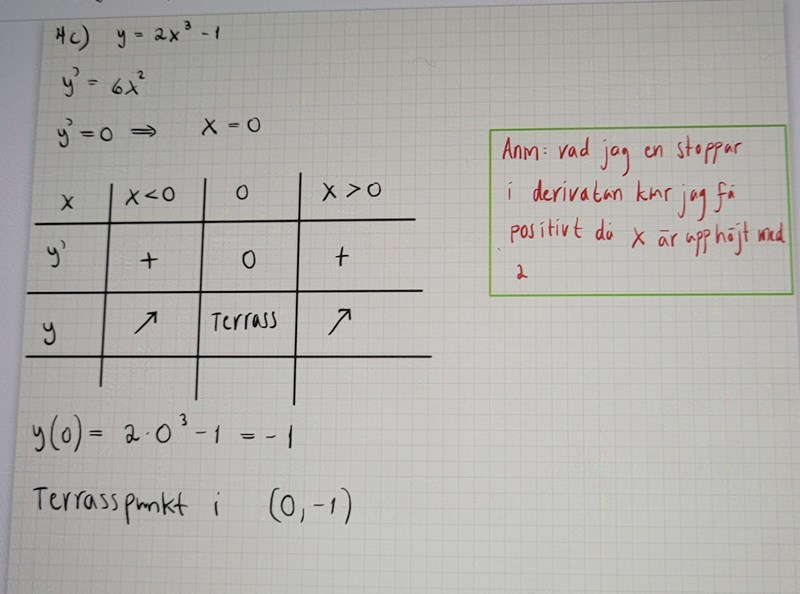 4c) y = 2x³ - 1
y' = 6x²
y' = 0 ⇒ x = 0
x | x < 0 | 0 | x > 0
y' | + | 0 | +
y | ↗ | Terrass | ↗
y(0) = 2·0³ - 1 = -1
Terrasspunkt i (0, -1)
Anm: vad jag en stoppar
i derivatan kmr jag få
positivt då x är upphöjt med
2